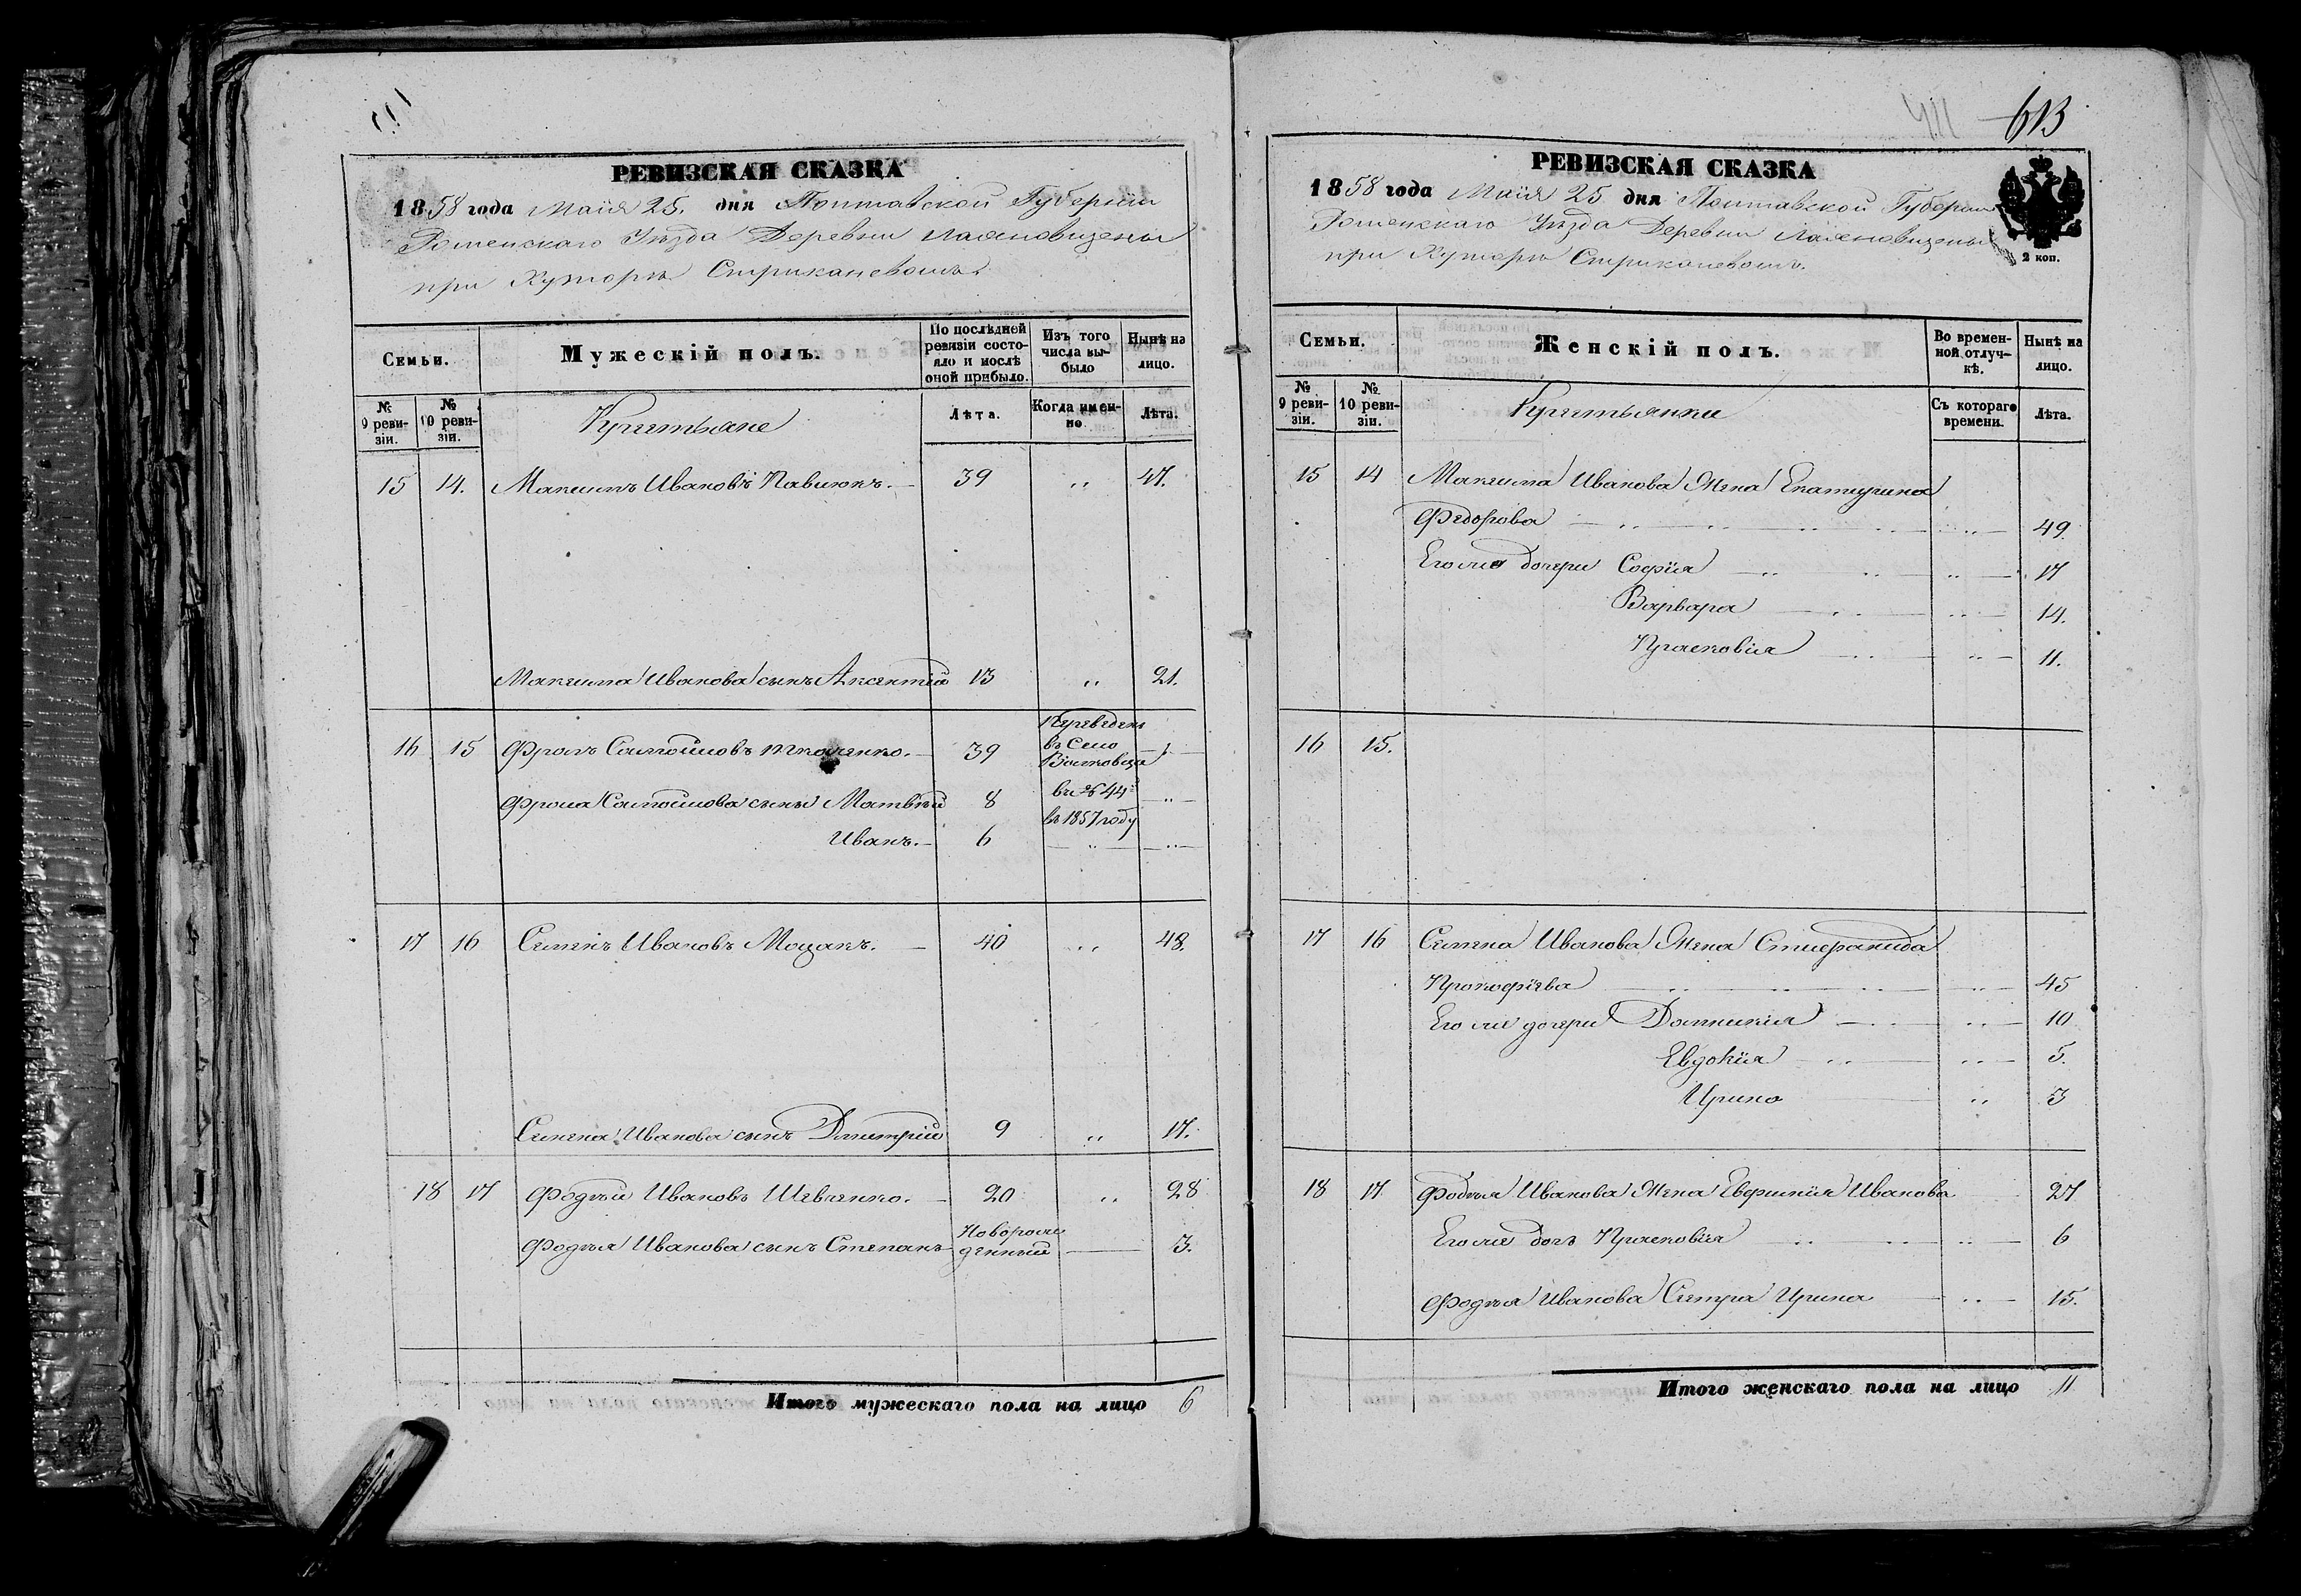 РЕВИЗСКАЯ СКАЗКА
1858 года Маія 25. дня Полтавской Губерніи
Роменскаго Уѣзда Деревни
при Хуторѣ
Семьи.
Мужескій полъ.
По послѣдней ревизіи состояло и послѣ оной прибыло.
Изъ того числа выбыло
Нынѣ на лицо.
№ 9 ревизіи.
№ 10 ревизіи.
Крестьяне
Лѣта.
Когда именно.
Лѣта.
15 14. Максимъ Ивановъ Павлюкъ. 39 „ 47.
Максима Иванова сынъ Аксентій 13 „ 21.
16 15 Фролъ Самойловъ Ткаченко. 39
Переведен
въ Село
Волковца
Фрола Самойлова сынъ Матвѣй 8 въ № 44
въ 1857 году
Иванъ. 6 „ „
17 16 Семенъ Ивановъ Моцакъ. 40 „ 48.
Семена Иванова сынъ Дмитрій 9 „ 17.
18 17 Фодѣй Ивановъ Шевченко. 20 „ 28
Фодѣя Иванова сынъ Степанъ Новорожденный 3.
Итого мужескаго пола на лицо 6
613
РЕВИЗСКАЯ СКАЗКА
1858 года Маія 25 дня Полтавской Губерніи
Роменскаго Уѣзда Деревни
при Хуторѣ
2 коп.
Семьи.
Женскій полъ.
Во временной отлучкѣ.
Нынѣ на лицо.
№ 9 ревизіи.
№ 10 ревизіи.
Крестьянки
Съ котораго времени.
Лѣта.
15 14 Максима Иванова Жена Екатерина
Федорова „ „ „ „ 49
Его же дочери Софія „ „ „ 17
Варвара „ „ 14.
Прасковія „ „ 11.
16 15.
17 16 Семена Иванова Жена Стиеранида
Прокофіева „ „ „ „ 45
Его же дочери Домникія „ „ 10
Евдокія „ „ 5.
Ирина „ 3
18 17 Фодѣя Иванова Жена Евфимія Иванова 27
Его же дочь Прасковія „ „ „ 6
Фодѣя Иванова Сестра Ирина „ 15.
Итого женскаго пола на лицо 11